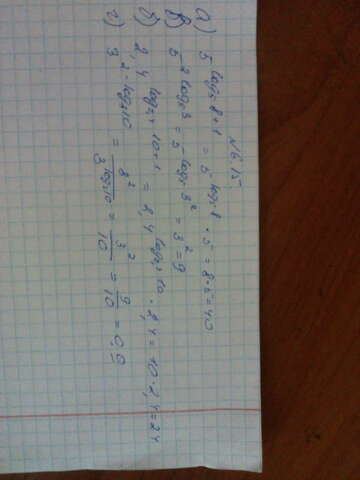 №6.15
а) 5^{log_5 8+1} = 5^{log_5 8} · 5 = 8·5=40
в) 5^{2 log_5 3} = 5^{log_5 3^2} = 3^2 = 9
б) 2,4^{log_{2,4} 10+1} = 2,4^{log_{2,4} 10} · 2,4 = 10·2,4=24
г) 3^{2-log_3 10} = \frac{3^2}{3^{log_3 10}} = \frac{3^2}{10} = \frac{9}{10} = 0,9